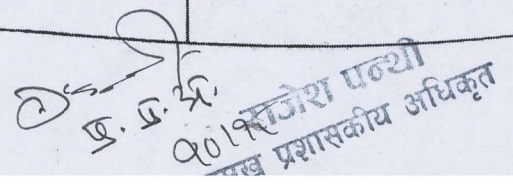 प्र. प्र. अ.
१०।१२
राजेश पन्थी
प्रमुख प्रशासकीय अधिकृत